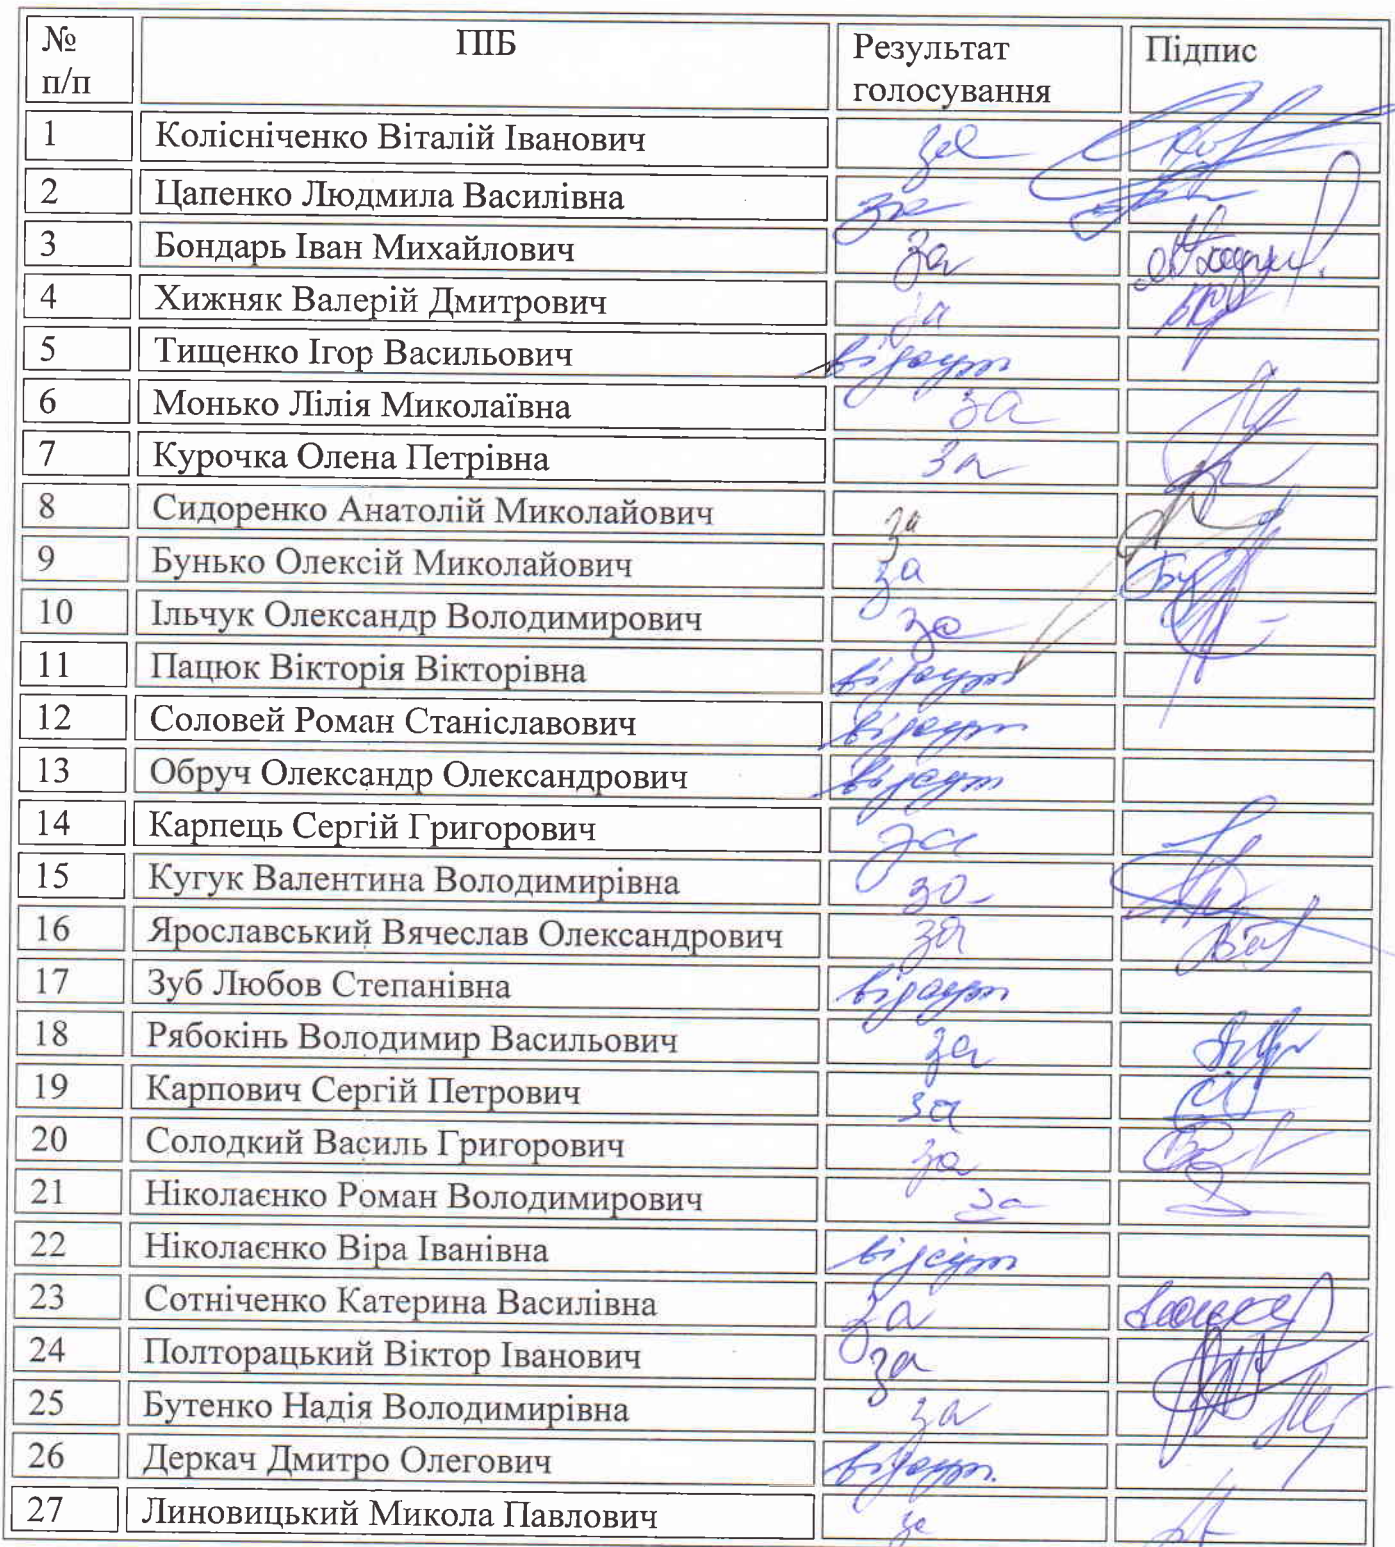 № п/п ПІБ Результат голосування Підпис
1 Колісніченко Віталій Іванович за
2 Цапенко Людмила Василівна за
3 Бондарь Іван Михайлович за
4 Хижняк Валерій Дмитрович за
5 Тищенко Ігор Васильович відсутн
6 Монько Лілія Миколаївна за
7 Курочка Олена Петрівна за
8 Сидоренко Анатолій Миколайович за
9 Бунько Олексій Миколайович за
10 Ільчук Олександр Володимирович за
11 Пацюк Вікторія Вікторівна відсутн
12 Соловей Роман Станіславович відсутн
13 Обруч Олександр Олександрович відсутн
14 Карпець Сергій Григорович за
15 Кугук Валентина Володимирівна за
16 Ярославський Вячеслав Олександрович за
17 Зуб Любов Степанівна відсутн
18 Рябокінь Володимир Васильович за
19 Карпович Сергій Петрович за
20 Солодкий Василь Григорович за
21 Ніколаєнко Роман Володимирович за
22 Ніколаєнко Віра Іванівна відсутн
23 Сотніченко Катерина Василівна за
24 Полторацький Віктор Іванович за
25 Бутенко Надія Володимирівна за
26 Деркач Дмитро Олегович відсутн.
27 Линовицький Микола Павлович за